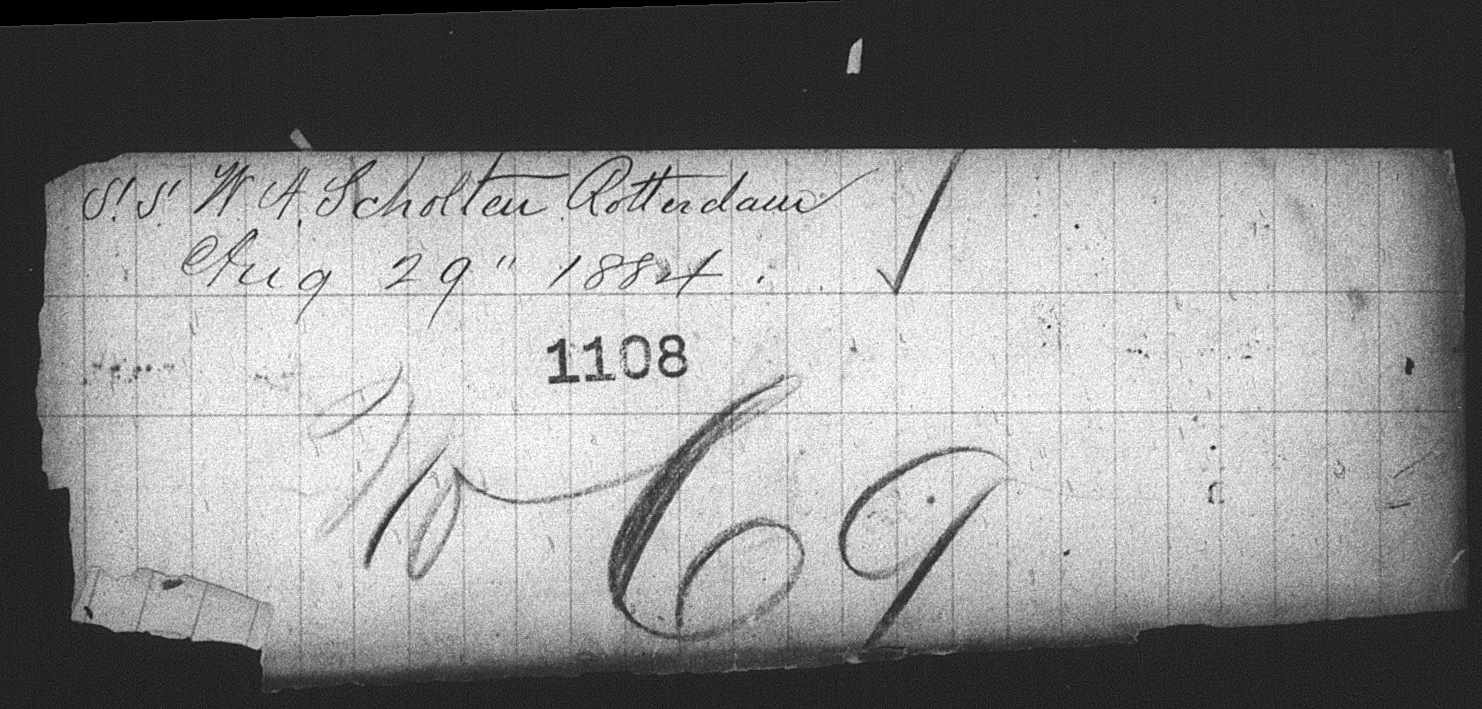 S.S. W. A. Scholten Rotterdam
Aug 29" 1884.
1108
No 69